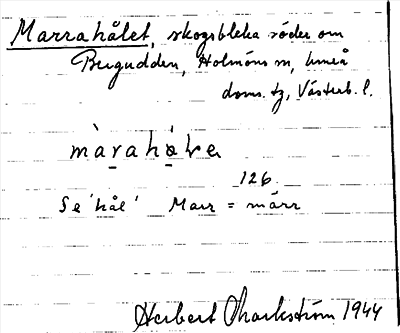 Marrahålet, skogsbleka söder om
Bergudden, Holmöns sn, Umeå
doms. tg, Västerb. l.
màrahò̱le
126.
Se 'hål' Marr = märr
Herbert Markström 1944